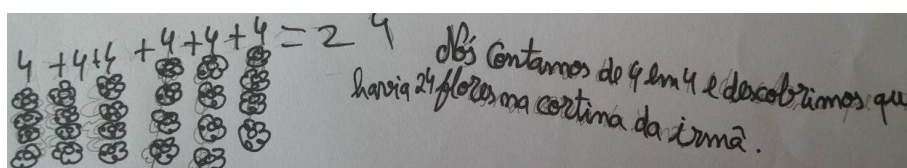 4 + 4 + 4 + 4 + 4 + 4 = 24
Nós contamos de 4 em 4 e descobrimos qu
havia 24 flores na cortina da irmã.